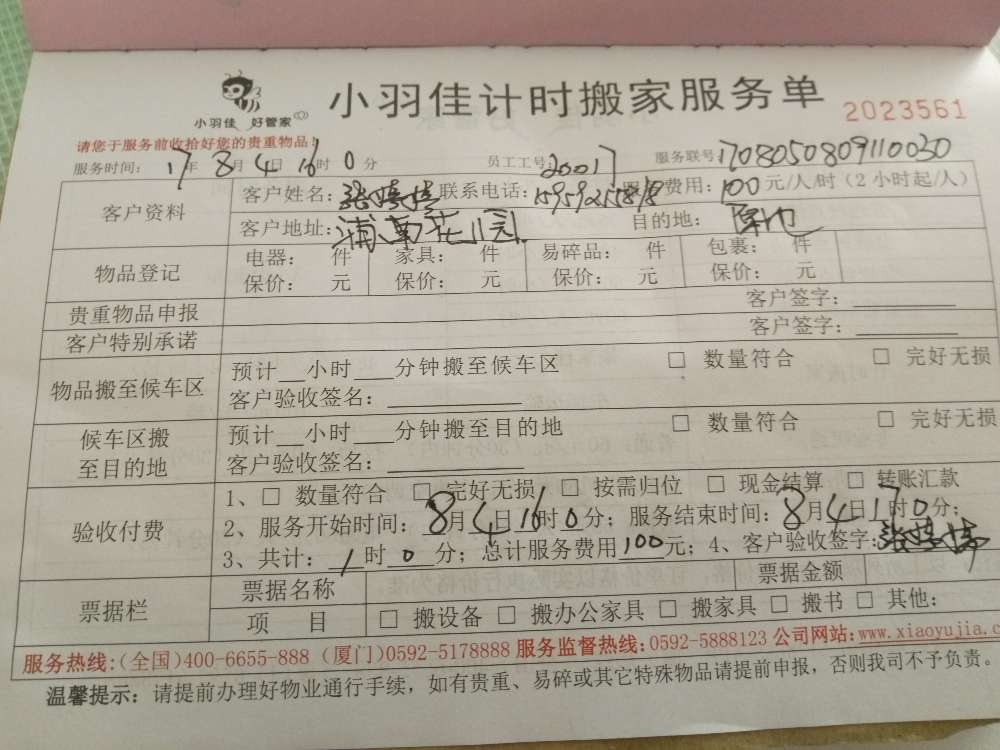 小羽佳计时搬家服务单
2023561
小羽佳 好管家
请您于服务前收拾好您的贵重物品！
服务时间： 17年 8月 4日 16时 0分 员工工号：20017 服务联号：1708050809110030
客户资料 客户姓名： 联系电话： 服务费用：100元/人/时（2小时起/人）
客户地址：浦南花园 目的地：
物品登记 电器： 件 家具： 件 易碎品： 件 包裹： 件
保价： 元 保价： 元 保价： 元 保价： 元
贵重物品申报 客户签字：
客户特别承诺 客户签字：
物品搬至候车区 预计__小时___分钟搬至候车区 □ 数量符合 □ 完好无损
客户验收签名：
候车区搬至目的地 预计__小时___分钟搬至目的地 □ 数量符合 □ 完好无损
客户验收签名：
验收付费 1、□ 数量符合 □ 完好无损 □ 按需归位 □ 现金结算 □ 转账汇款
2、服务开始时间：8月4日16时0分；服务结束时间：8月4日17时0分；
3、共计：1时0分；总计服务费用100元；4、客户验收签字：
票据栏 票据名称 票据金额
项 目 □ 搬设备 □ 搬办公家具 □ 搬家具 □ 搬书 □ 其他：
服务热线：(全国)400-6655-888 (厦门)0592-5178888 服务监督热线：0592-5888123 公司网站：www.xiaoyujia.c
温馨提示：请提前办理好物业通行手续，如有贵重、易碎或其它特殊物品请提前申报，否则我司不予负责。